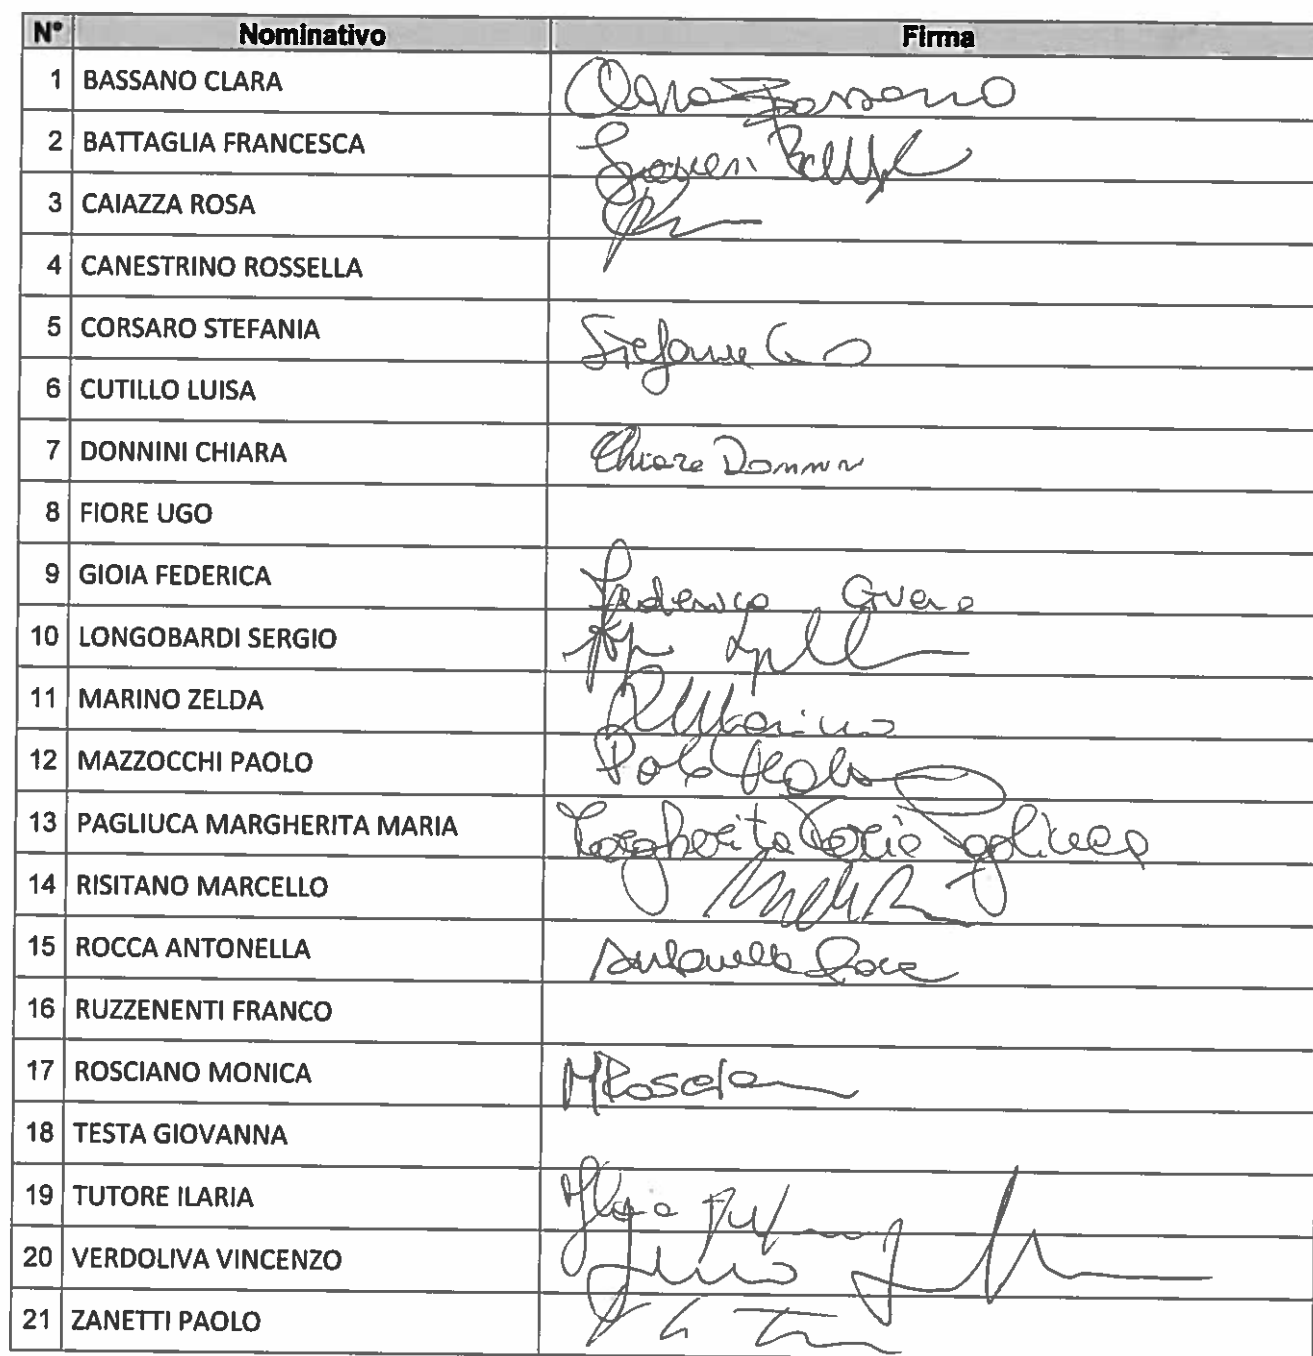 N° Nominativo Firma
1 BASSANO CLARA Clara Bassano
2 BATTAGLIA FRANCESCA
3 CAIAZZA ROSA
4 CANESTRINO ROSSELLA
5 CORSARO STEFANIA
6 CUTILLO LUISA
7 DONNINI CHIARA Chiara Donnini
8 FIORE UGO
9 GIOIA FEDERICA Federica
10 LONGOBARDI SERGIO
11 MARINO ZELDA Marino
12 MAZZOCCHI PAOLO Paolo
13 PAGLIUCA MARGHERITA MARIA Margherita Maria Pagliuca
14 RISITANO MARCELLO
15 ROCCA ANTONELLA Antonella Rocca
16 RUZZENENTI FRANCO
17 ROSCIANO MONICA
18 TESTA GIOVANNA
19 TUTORE ILARIA Ilaria
20 VERDOLIVA VINCENZO
21 ZANETTI PAOLO